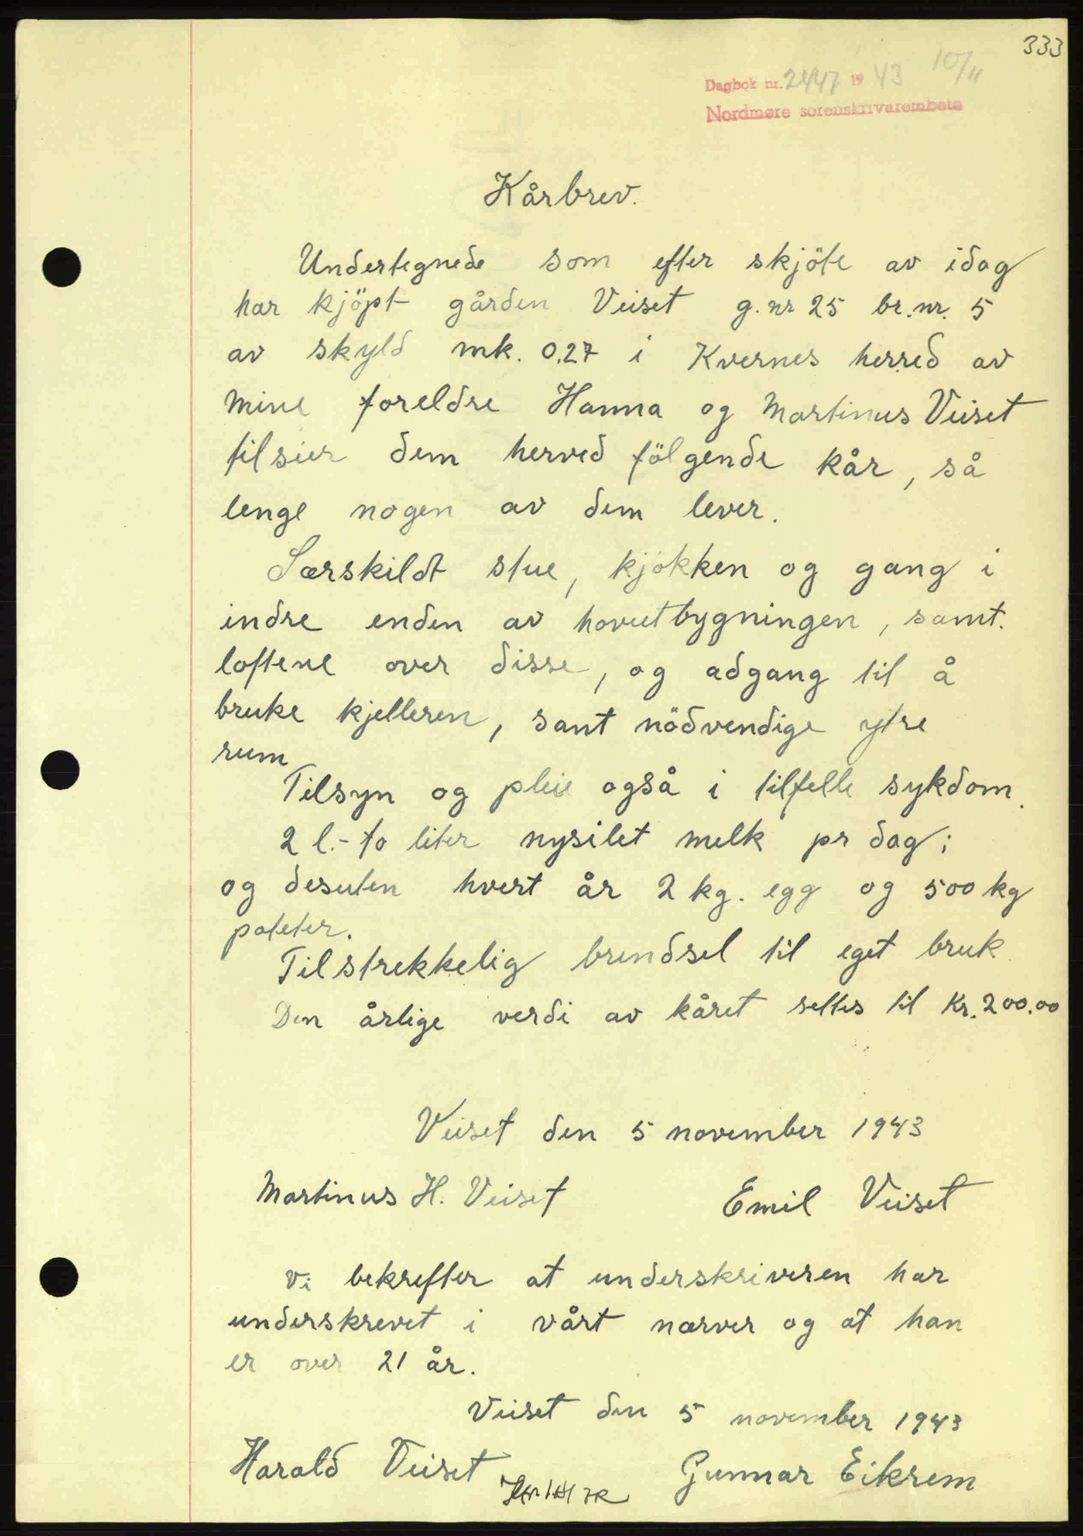 333
Dagbok nr. 2447 19 43 10/11
Nordmøre sorenskrivarembete
Kårbrev.
Undertegnede som efter skjöte av idag
har kjöpt gården Veiset g.nr 25 br.nr. 5
av skyld mk. 0.27 i Kvernes herred av
mine foreldre Hanna og Martinus Veiset
tilsier dem herved fölgende kår, så
lenge nogen av dem lever.
Særskildt stue, kjøkken og gang i
indre enden av hovetbygningen, samt.
loftene over disse, og adgang til å
bruke kjelleren, samt nödvendige ytre
rum
Tilsyn og pleie også i tilfelle sykdom.
2 l.- to liter nysilet melk pr dag;
og desuten hvert år 2 kg. egg og 500 kg
poteter.
Tilstrekkelig brendsel til eget bruk
Den årlige verdi av kåret settes til Kr. 200.00
Veiset den 5 november 1943
Martinus H. Veiset Emil Veiset
Vi bekrefter at underskriveren har
underskrevet i vårt nærver og at han
er over 21 år.
Veiset den 5 november 1943
Harald Veiset Gunnar Eikrem